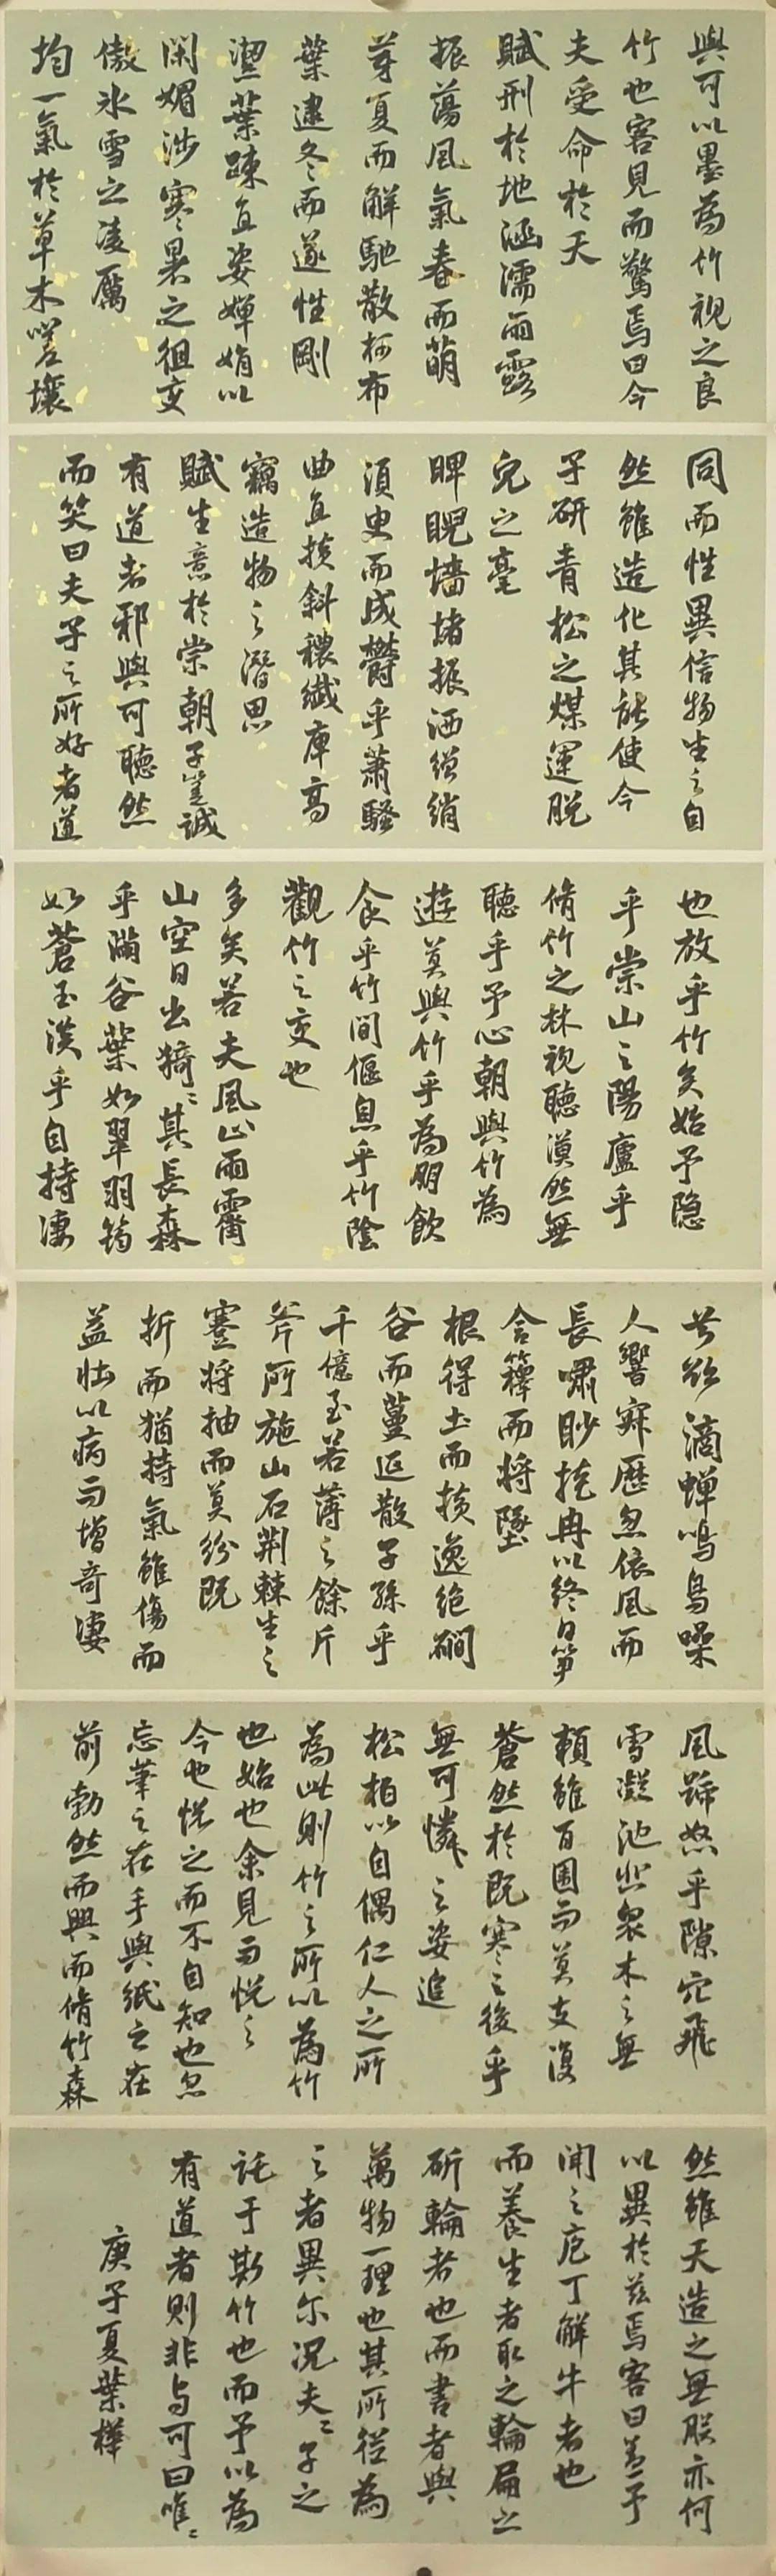 與可以墨為竹視之良
竹也客見而驚焉曰今
夫受命於天
賦刑於地涵濡雨露
振蕩風氣春而萌
芽夏而解馳散柯布
葉逮冬而遂性剛
潔葉疎直姿嬋娟以
閑媚涉寒暑之徂变
傲氷雪之凌厲
均一氣於草木嗟壤
同而性異信物生之自
然雖造化其能使今
子研青松之煤運脫
兔之毫
睥睨墻堵振洒繒綃
須臾而成鬱乎蕭騷
曲直撗斜穠纖庳高
竊造物之潛思
賦生意於崇朝子豈誠
有道者邪與可聽然
而笑曰夫子之所好者道
也放乎竹矣始予隐
乎崇山之陽廬乎
脩竹之林視聽漠然無
聽乎予心朝與竹為
遊莫與竹乎為朋飲
食乎竹間偃息乎竹陰
觀竹之变也
多矣若夫風止雨霽
山空日出猗〻其長森
乎滿谷葉如翠羽筠
如蒼玉淡乎自持凄
兮欲滴蟬鳴鳥噪
人響寂歷忽依風而
長嘯眇掩冉以終日笋
含籜而將墜
根得土而撗逸絶磵
谷而蔓延散子孫乎
千億至若藂之餘斤
斧所施山石荆棘生之
蹇將抽而莫紛既
折而猶持氣雖傷而
益壯以病而增奇凄
風號怒乎隙穴飛
雪凝沍乎陂池悲衆木之無
頼雖百圍而莫支復
蒼然於既寒之後乎
無可憐之姿追
松柏以自偶仁人之所
為此則竹之所以為竹
也始也余見而悅之
今也悅之而不自知也忽
忘筆之在手與紙之在
前勃然而興而脩竹森
然雖天造之無朕亦何
以異於兹焉客曰盖予
聞之庖丁解牛者也
而養生者取之輪扁之
斫輪者也而書者與
萬物一理也其所從為
之者異尓況夫〻子之
託于斯竹也而予以為
有道者則非与可曰唯〻
庚子夏葉樺